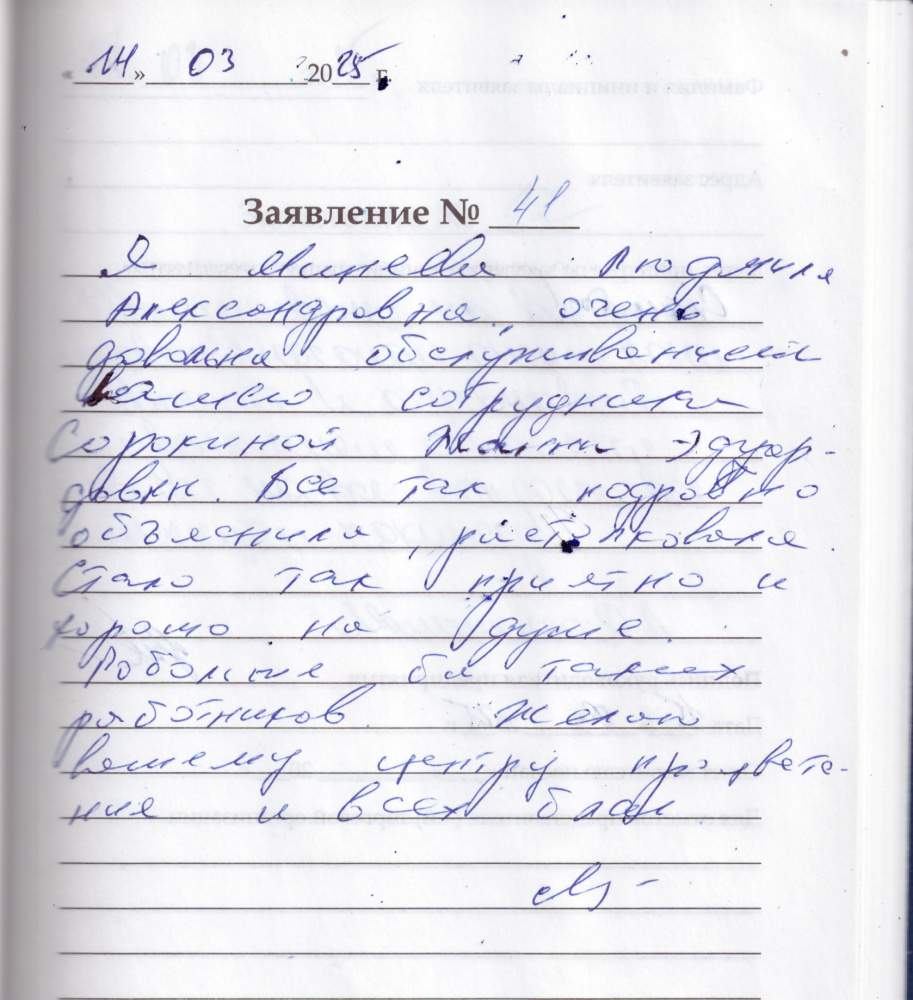 «14» 03 2025 г.
Заявление № 41
Я Людмила
Александровна очень
довольна обслуживанием
вашего сотрудника
Сорокиной Жанны Эдуар-
довны. Все так подробно
объяснила, растолковала.
Стало так приятно и
хорошо на душе.
Побольше бы таких
работников. Желаю
вашему центру процвета-
ния и всех благ